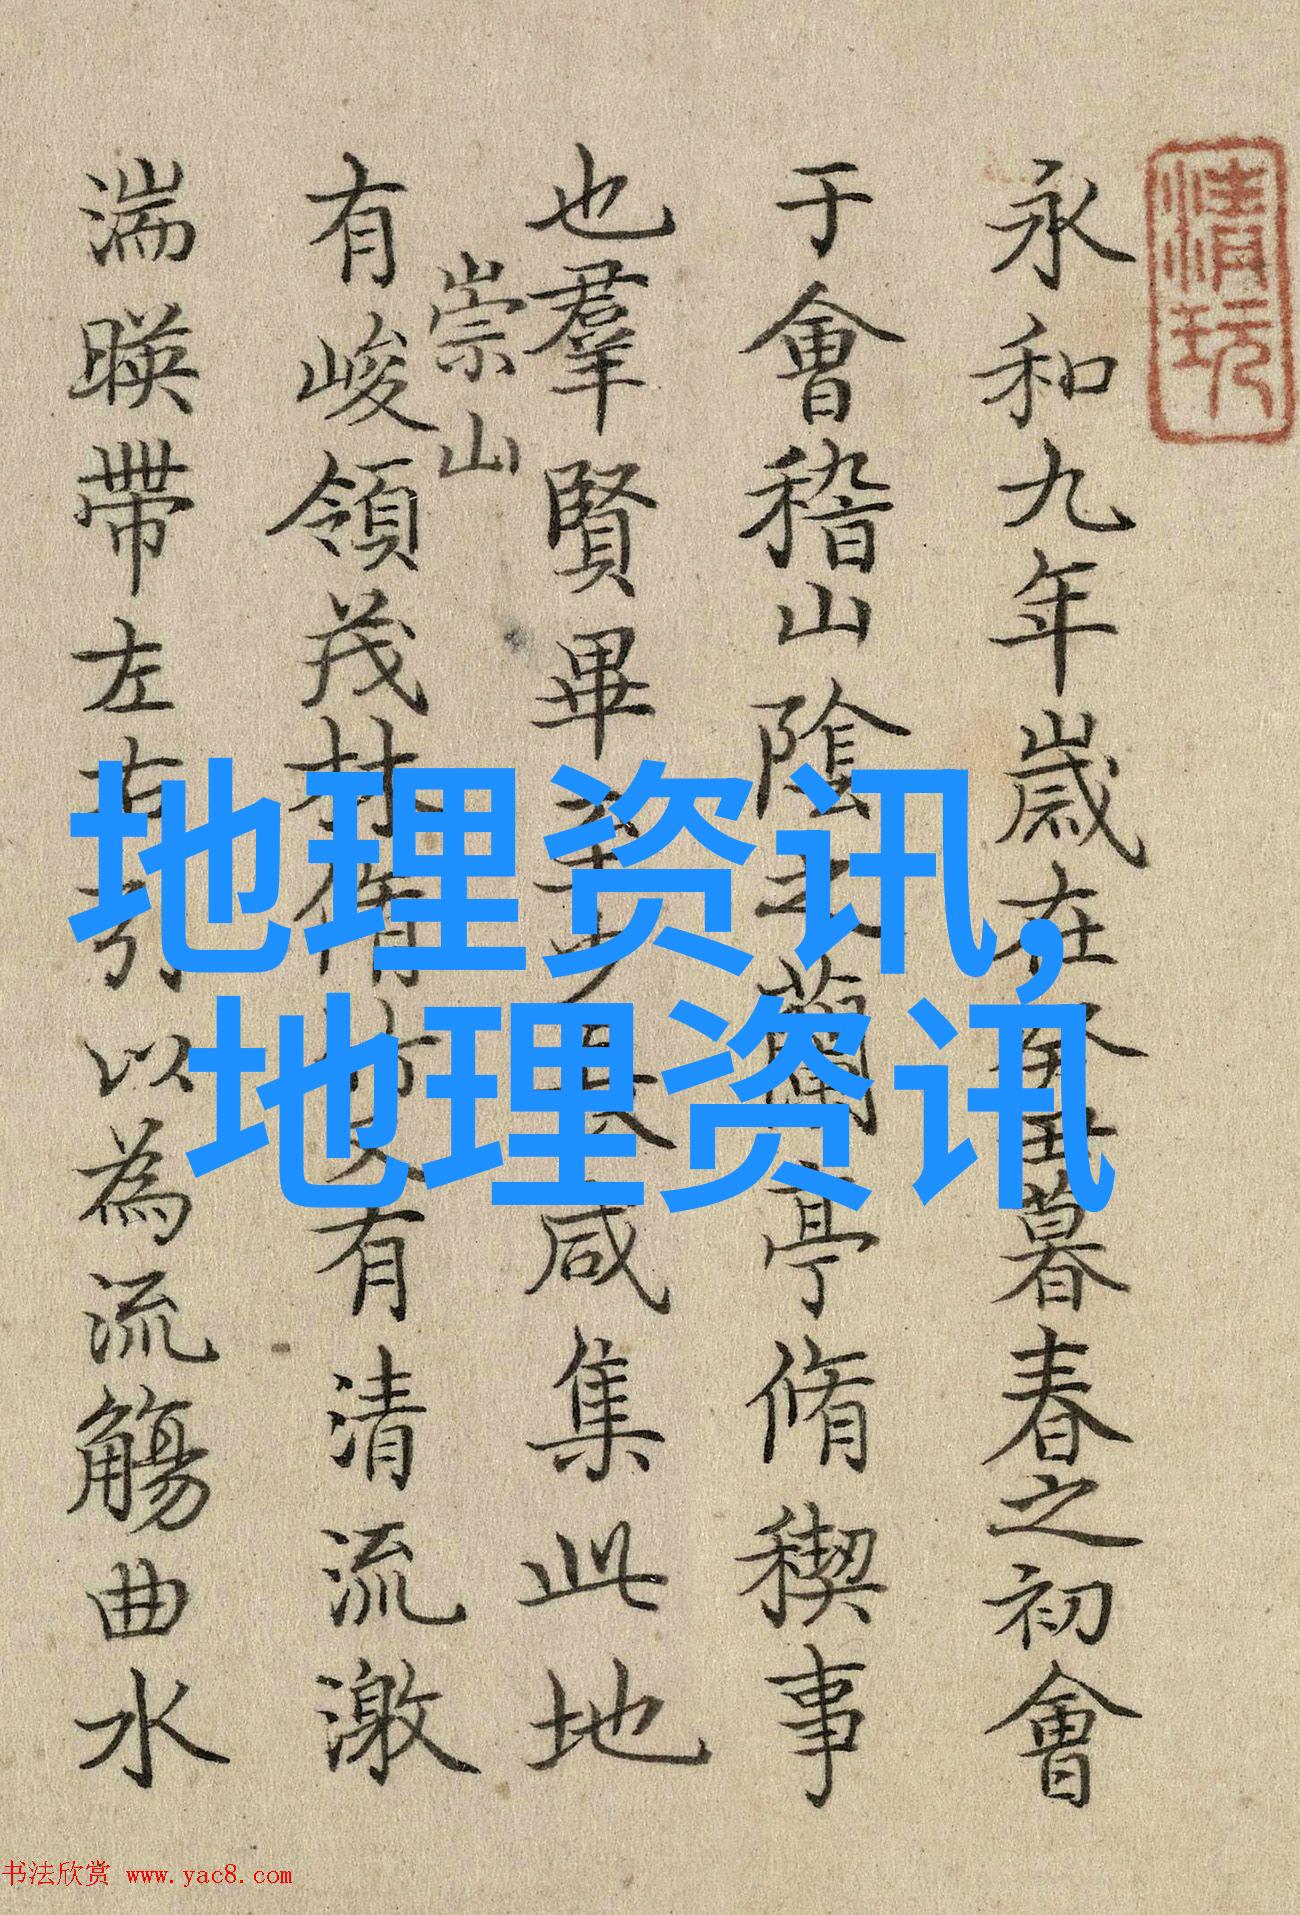 清玩
永和九年歲在癸丑暮春之初會
于會稽山陰之蘭亭脩稧事
也羣賢畢至少長咸集此地
崇山
有峻領茂林脩竹又有清流激
湍暎帶左右引以為流觴曲水
地理资讯,
地理资讯
书法欣赏 www.yac8.com